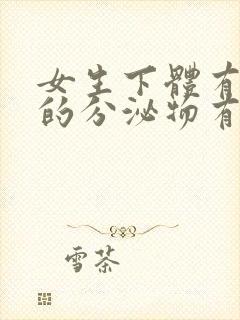 女生下體有
的分泌物有
雪茶